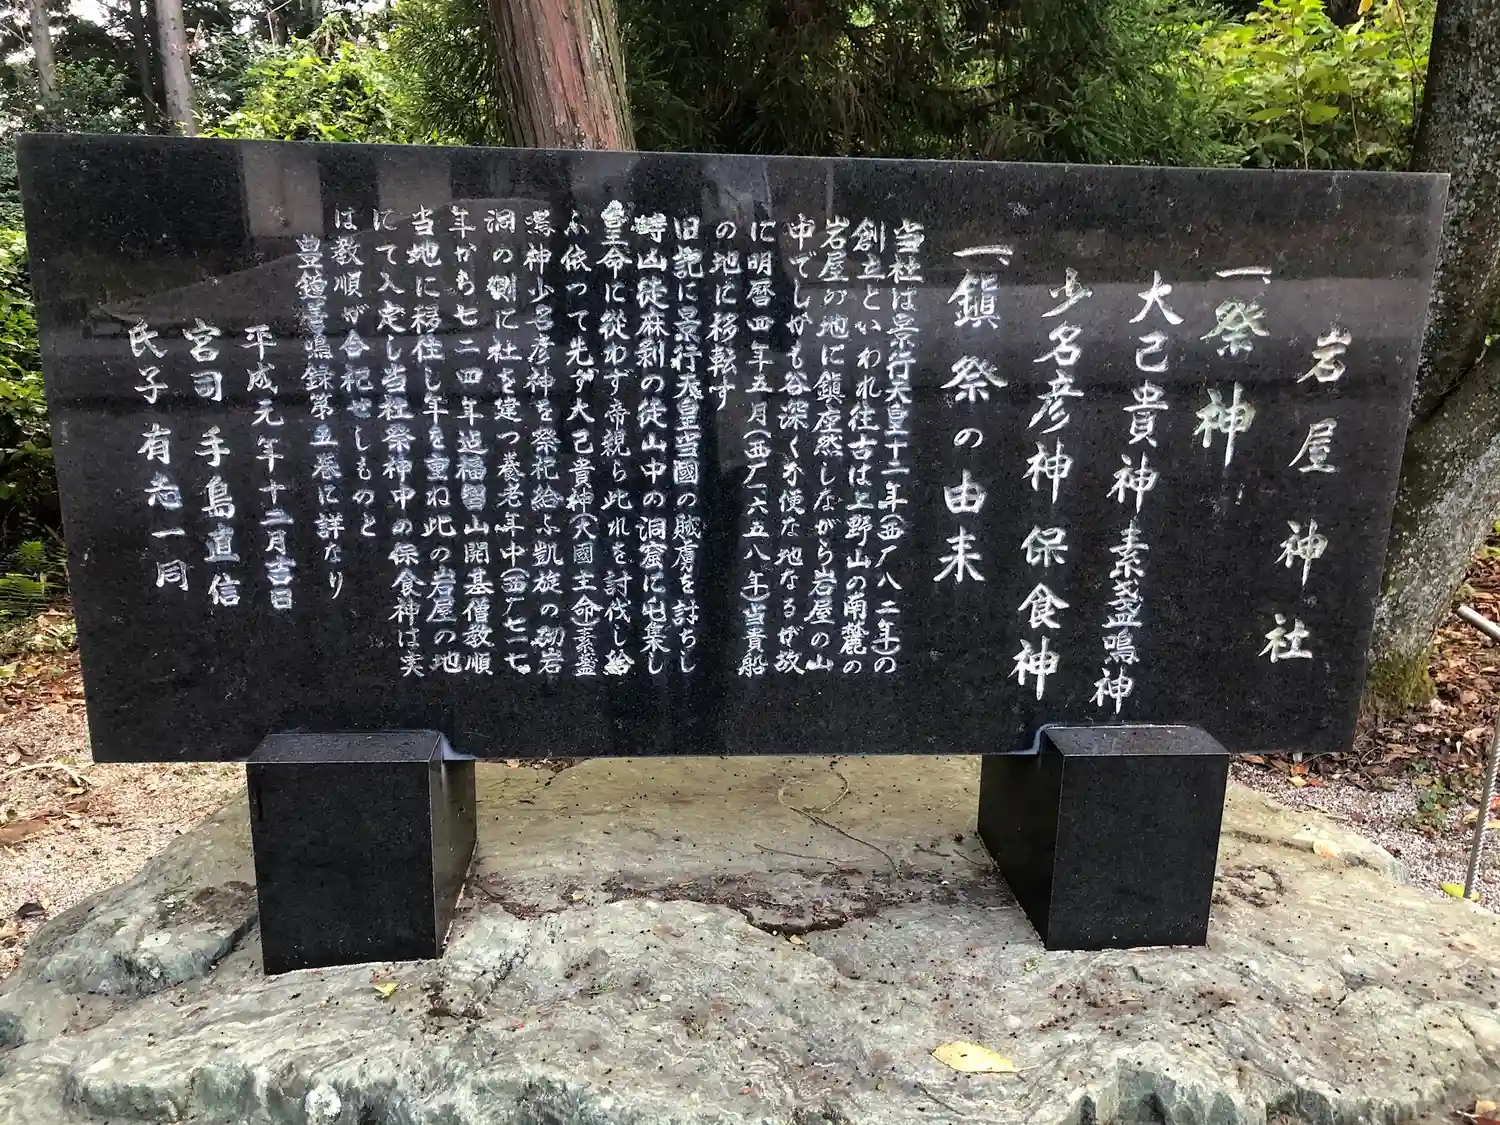 岩屋神社
一、祭神
大己貴神 素盞鳴神
少名彦神 保食神
一、鎭祭の由来
当社は景行天皇十二年(西厂八二年)の
創立といわれ往古は上野山の南麓の
岩屋の地に鎮座然しながら岩屋の山
中でしかも谷深く不便な地なるが故
に明暦四年五月(西厂一六五八年)当貴船
の地に移転す
旧記に景行天皇当國の賊虜を討ちし
時山徒麻剝の徒山中の洞窟に屯集し
皇命に従わず帝親ら此れを討伐し給
ふ依つて先ず大己貴神(大國主命)素盞
鳴神少名彦神を祭祀給ふ凱旋の砌岩
洞の側に社を建つ養老年中(西厂七一七
年から七二四年迠福智山開基僧教順
当地に移住し年を重ね此の岩屋の地
にて入定し当社祭神中の保食神は実
は教順が合祀せしものと
豊鐘善鳴録第五巻に詳なり
平成元年十二月吉日
宮司 手島直信
氏子有志一同